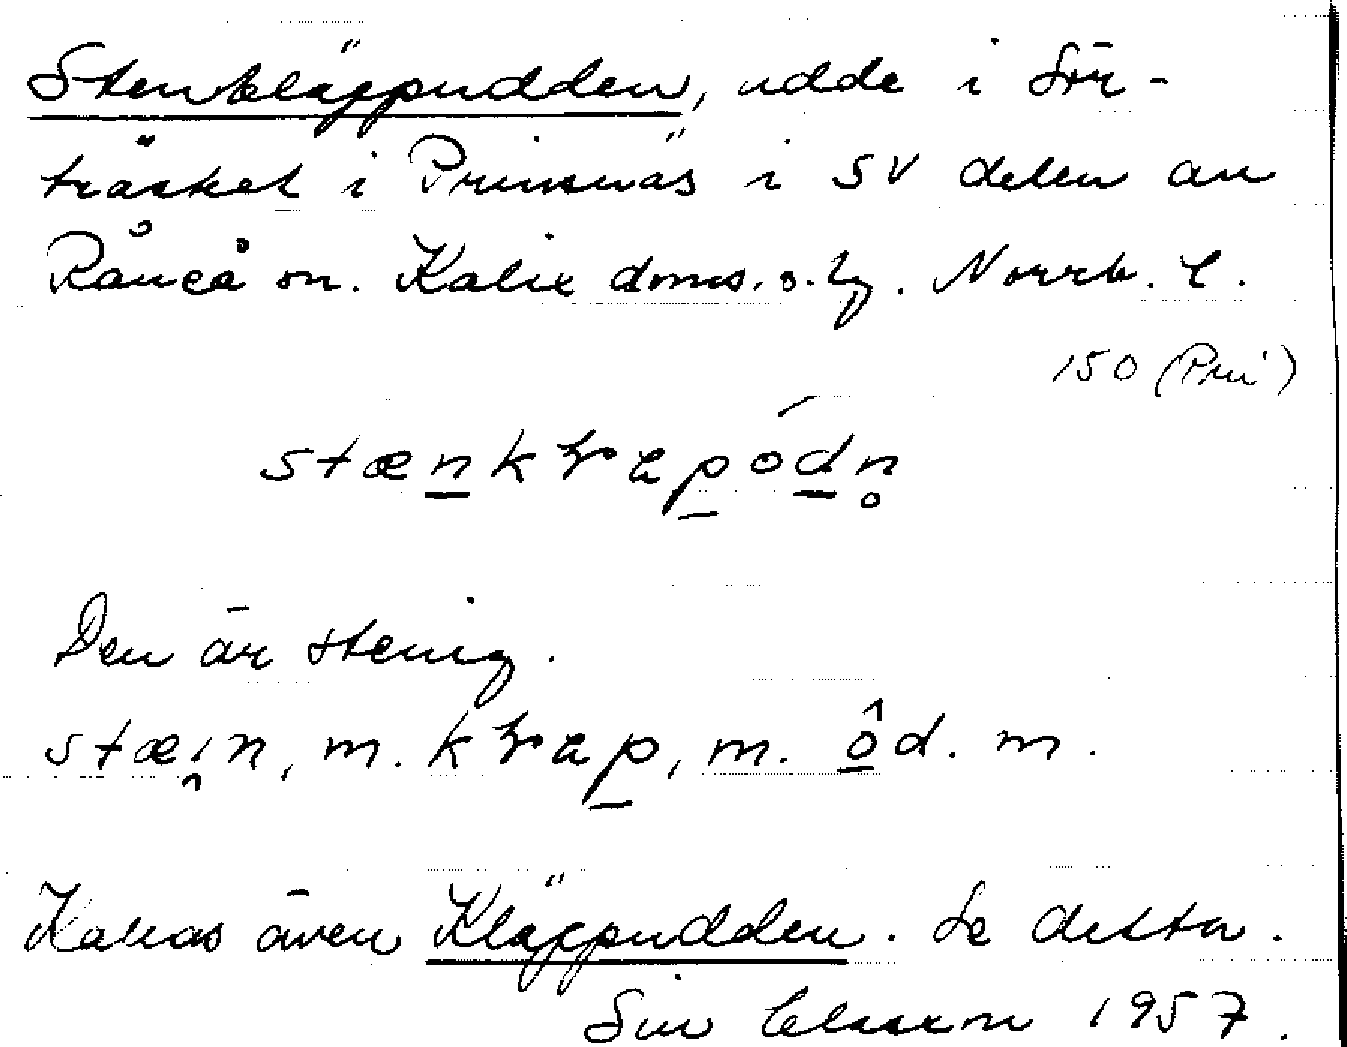 Stenkläppudden, udde i Sör-
träsket i Prinsnäs i SV delen av
Råneå sn. Kalix doms. o. lg. Norrb. l.
150 (Pri)
stænkꞎapódn̥
Den är stenig.
stæi̯n, m. kꞎap, m. ôd. m.
Kallas även Kläppudden. Se detta.
1957.